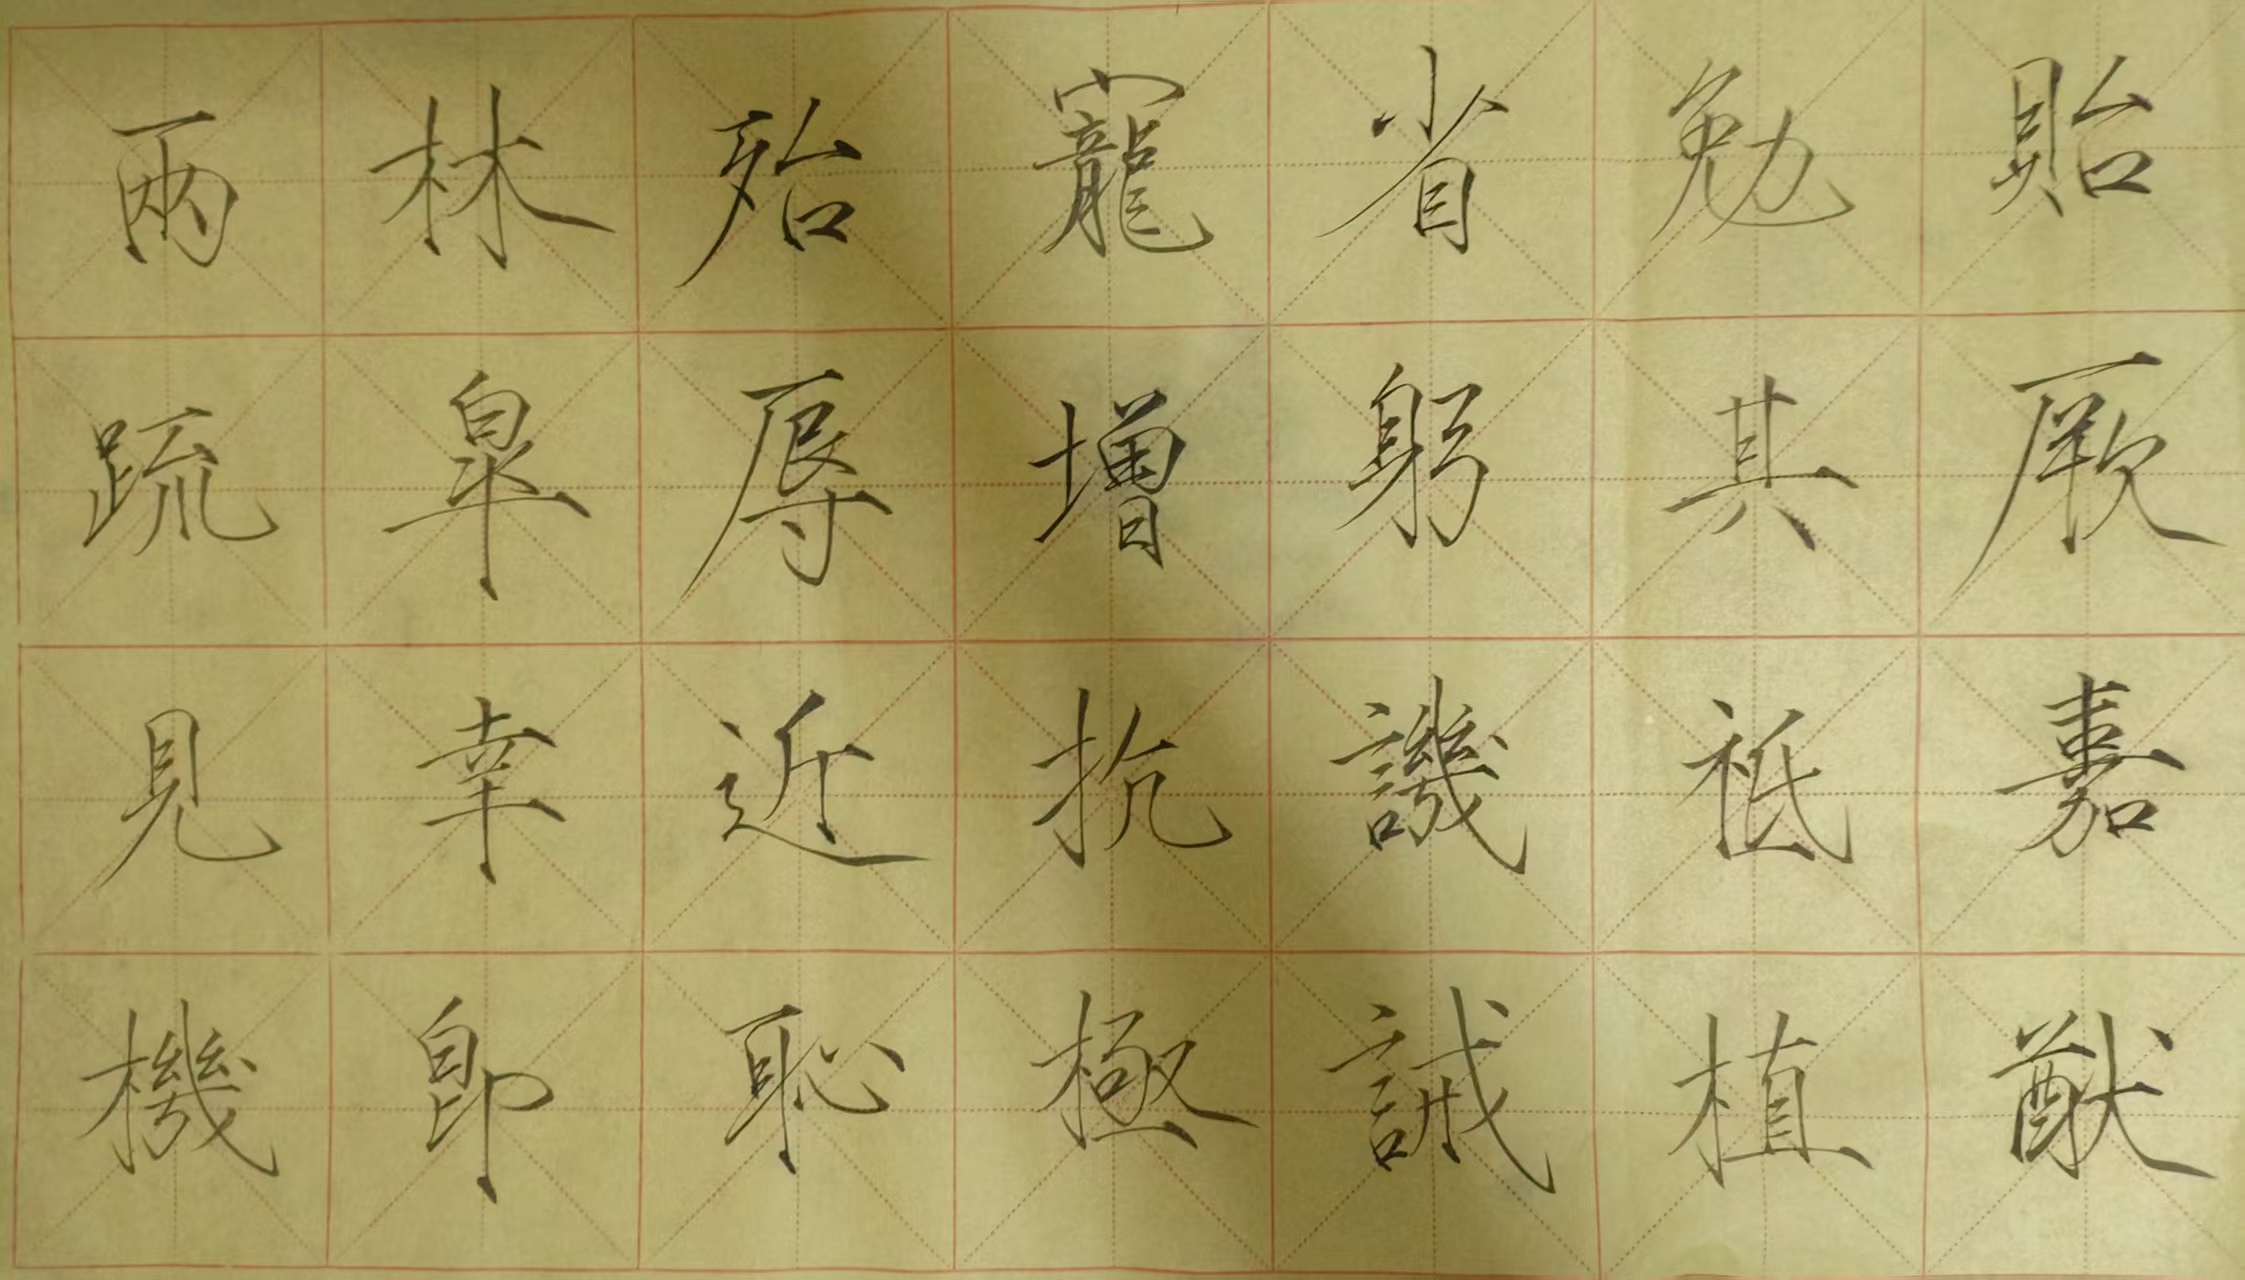 貽厥嘉猷
勉其祗植
省躬譏誡
寵增抗極
殆辱近恥
林皐幸即
兩疏見機